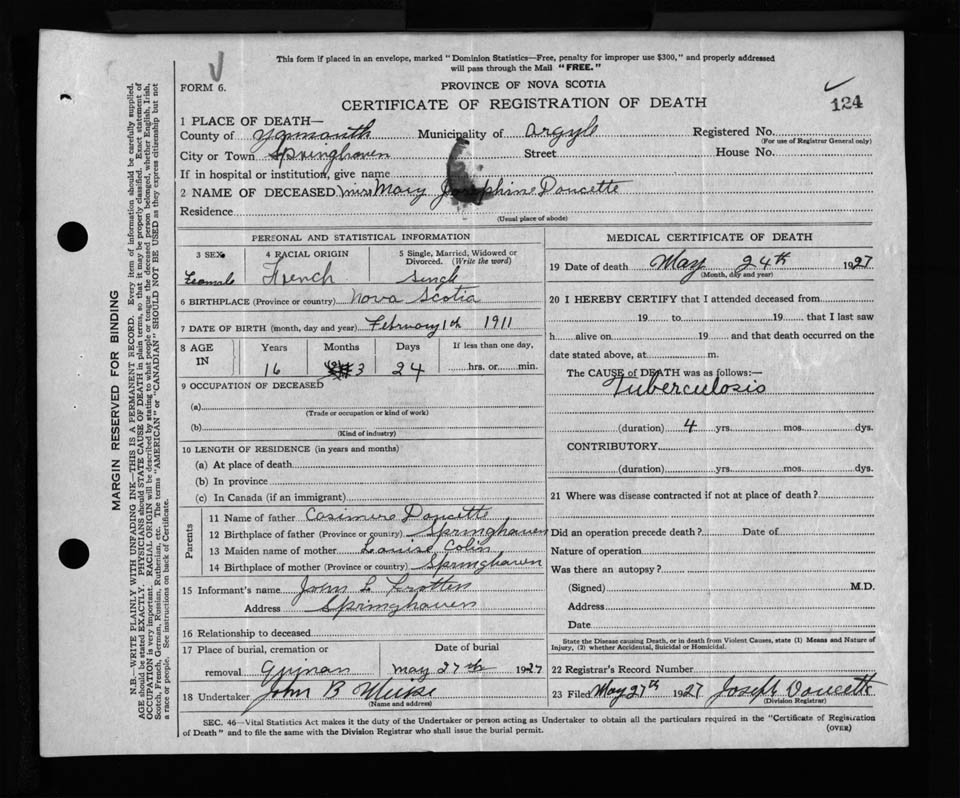 This form if placed in an envelope, marked "Dominion Statistics—Free, penalty for improper use $300," and properly addressed
will pass through the Mail "FREE."
FORM 6.
PROVINCE OF NOVA SCOTIA
CERTIFICATE OF REGISTRATION OF DEATH
124
1 PLACE OF DEATH—
County of Yarmouth Municipality of Argyle Registered No.
(For use of Registrar General only)
City or Town Springhaven Street House No.
If in hospital or institution, give name
2 NAME OF DECEASED Miss Mary Josephine Doucette
Residence
(Usual place of abode)
PERSONAL AND STATISTICAL INFORMATION
3 SEX 4 RACIAL ORIGIN 5 Single, Married, Widowed or Divorced. (Write the word)
Female French Single
6 BIRTHPLACE (Province or country) Nova Scotia
7 DATE OF BIRTH (month, day and year) February 1th 1911
8 AGE IN Years Months Days If less than one day,
16 3 24 hrs. or min.
9 OCCUPATION OF DECEASED
(a)
(Trade or occupation or kind of work)
(b)
(Kind of industry)
10 LENGTH OF RESIDENCE (in years and months)
(a) At place of death
(b) In province
(c) In Canada (if an immigrant)
Parents
11 Name of father Casimere Doucette
12 Birthplace of father (Province or country) Springhaven
13 Maiden name of mother Louise Colin
14 Birthplace of mother (Province or country) Springhaven
15 Informant's name John L
Address Springhaven
16 Relationship to deceased
17 Place of burial, cremation or Date of burial
removal Quinan May 27th 1927
18 Undertaker John B Muise
(Name and address)
MEDICAL CERTIFICATE OF DEATH
19 Date of death May 24th 1927
(Month, day and year)
20 I HEREBY CERTIFY that I attended deceased from
19 to 19 that I last saw
h alive on 19 and that death occurred on the
date stated above, at m.
The CAUSE of DEATH was as follows:—
Tuberculosis
(duration) 4 yrs. mos. dys.
CONTRIBUTORY
(duration) yrs. mos. dys.
21 Where was disease contracted if not at place of death?
Did an operation precede death? Date of
Nature of operation
Was there an autopsy?
(Signed) M.D.
Address
Date
State the Disease causing Death, or in death from Violent Causes, state (1) Means and Nature of
Injury, (2) whether Accidental, Suicidal or Homicidal.
22 Registrar's Record Number
23 Filed May 27th 1927 Joseph Doucette
(Division Registrar)
SEC. 46—Vital Statistics Act makes it the duty of the Undertaker or person acting as Undertaker to obtain all the particulars required in the "Certificate of Registration
of Death" and to file the same with the Division Registrar who shall issue the burial permit.
(OVER)
MARGIN RESERVED FOR BINDING
N.B.—WRITE PLAINLY WITH UNFADING INK—THIS IS A PERMANENT RECORD. Every item of information should be carefully supplied.
AGE should be stated EXACTLY. PHYSICIANS should STATE CAUSE OF DEATH in plain terms, so that it may be properly classified. Exact statement of
OCCUPATION is very important. RACIAL ORIGIN will be described by stating to what people or tongue the deceased person belonged, whether English, Irish,
Scotch, French, German, Russian, Ruthenian, etc. The terms "AMERICAN" or "CANADIAN" SHOULD NOT BE USED as they express citizenship but not
a race or people. See instructions on back of Certificate.